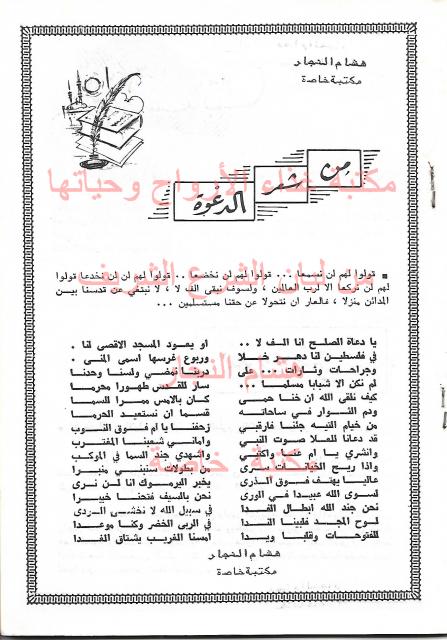 هشام النجار
مكتبة خاصة
من
شعر
الدعوة
مكتبة غذاء الأرواح وحياتها
قولوا لهم لن نسمعا ... قولوا لهم لن نخضعا .. قولوا لهم لن لن نخدعا قولوا
لهم لن نركعا الا لرب العالمين ، ولسوف نبقى الف لا ، لا نبتغي عن قدسنا بين
المدائن منزلا ، فالعار ان نتحولا عن حقنا مستسلمين ...
من لسان الشرع الشريف
يا دعاة الصلح انا الف لا .. او يعود المسجد الاقصى لنا .
في فلسطين لنا دهر خلا وربوع غرسها أسمى المنى .
وجراحات وثارات ... على دربها نمضي ولسنا وحدنا
لم نكن الا شبابا مسلما .. سار للقدس طهورا محرما
كيف نلقى الله ان خنا حمى كان بالامس ممرا للسما
ودم الثوار في ساحاته قسما ان نستعيد الحرما
هشام النجار
من خيام التيه جئنا فارقبي زحفنا يا ام فوق النوب
قد دعانا للعلا صوت النبي واماني شعبنا المغترب
وانشري يا ام عنا واكتبي واشهدي جند السما في الموكب
واذا ريح الخيانات سرى من بطولات سنبني منبرا
مكتبة خاصة
عاليا يهتف فوق الذرى يخبر اليرموك انا لن نرى
لسوى الله عبيدا في الورى نحن بالسيف فتحنا خيبرا
نحن جند الله ابطال الفدا في سبيل الله لا نخشى الردى
لوح المجد فلبينا الندا في الربى الخضر وكنا موعدا
للفتوحات وقلبا ويدا امسنا الغريب يشتاق الغدا
هشام النجار
مكتبة خاصة